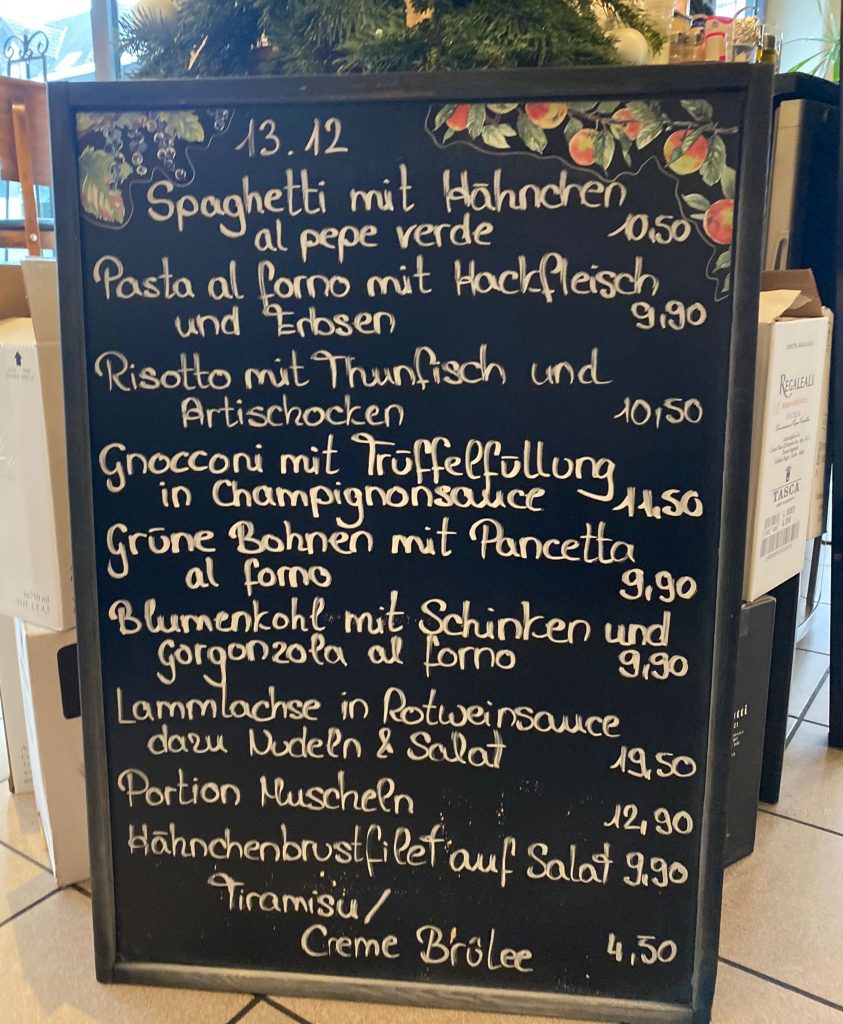 13.12
Spaghetti mit Hähnchen
al pepe verde 10,50
Pasta al forno mit Hackfleisch
und Erbsen 9,90
Risotto mit Thunfisch und
Artischocken 10,50
Gnocconi mit Trüffelfüllung
in Champignonsauce 11,50
Grüne Bohnen mit Pancetta
al forno 9,90
Blumenkohl mit Schinken und
Gorgonzola al forno 9,90
Lammlachse in Rotweinsauce
dazu Nudeln & Salat 19,50
Portion Muscheln 12,90
Hähnchenbrustfilet auf Salat 9,90
Tiramisu/
Creme Brûlee 4,50
REGALEALI
TASCA